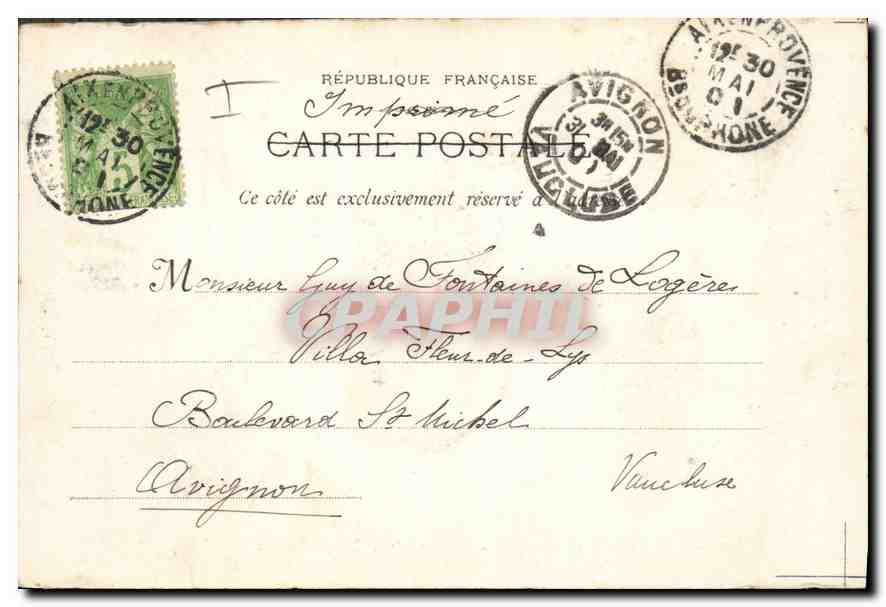 RÉPUBLIQUE FRANÇAISE
I
Imprimé
CARTE POSTALE
Ce côté est exclusivement réservé à
AIX EN PROVENCE
12E 30
MAI
01
BCHES DU RHONE
AVIGNON
MAI
01
VAUCLUSE
AIX EN PROVENCE
12E 30
MAI
01
BCHES DU RHONE
5
Monsieur Guy de Fontaines de Logères
CPAPHIL
Villa Fleur-de-Lys
Boulevard St Michel
Avignon Vaucluse